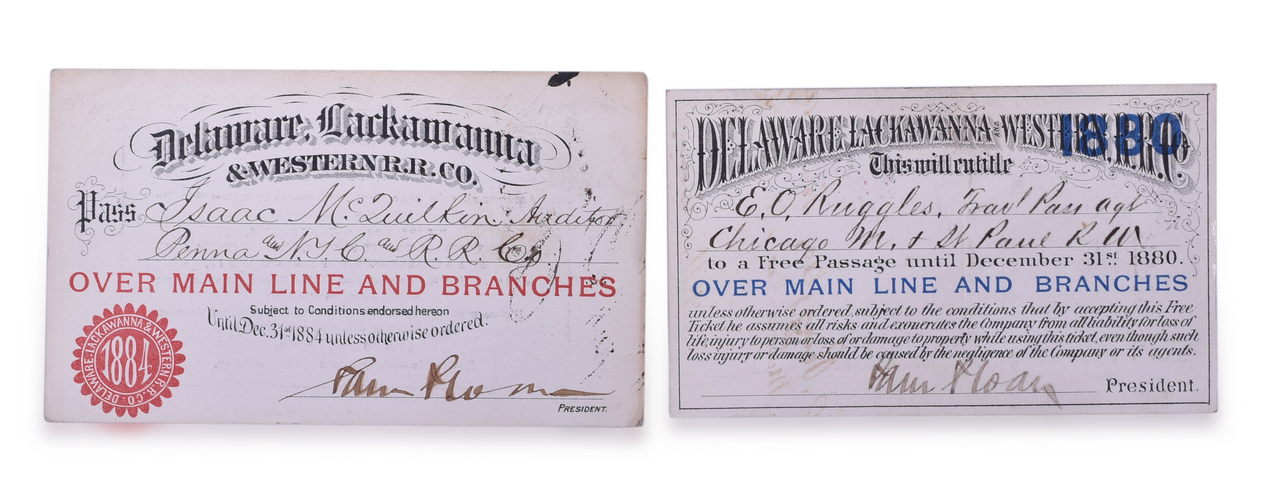 Delaware, Lackawanna
& WESTERN R.R. CO.
Pass Isaac McQuilkin Auditor
Penna and N.Y.C. and R.R. Co
OVER MAIN LINE AND BRANCHES
Subject to Conditions endorsed hereon
Until Dec. 31st 1884 unless otherwise ordered.
DELAWARE, LACKAWANNA & WESTERN R.R. CO.
1884
Sam Sloan
PRESIDENT.
DELAWARE, LACKAWANNA AND WESTERN R.R. CO.
1880
This will entitle
E. O. Ruggles, Trav'l Pass agt
Chicago M. & St Paul R W
to a Free Passage until December 31st. 1880.
OVER MAIN LINE AND BRANCHES
unless otherwise ordered, subject to the conditions that by accepting this Free
Ticket he assumes all risks and exonerates the Company from all liability for loss of
life, injury to person or loss of or damage to property while using this ticket, even though such
loss injury or damage should be caused by the negligence of the Company or its agents.
Sam Sloan President.